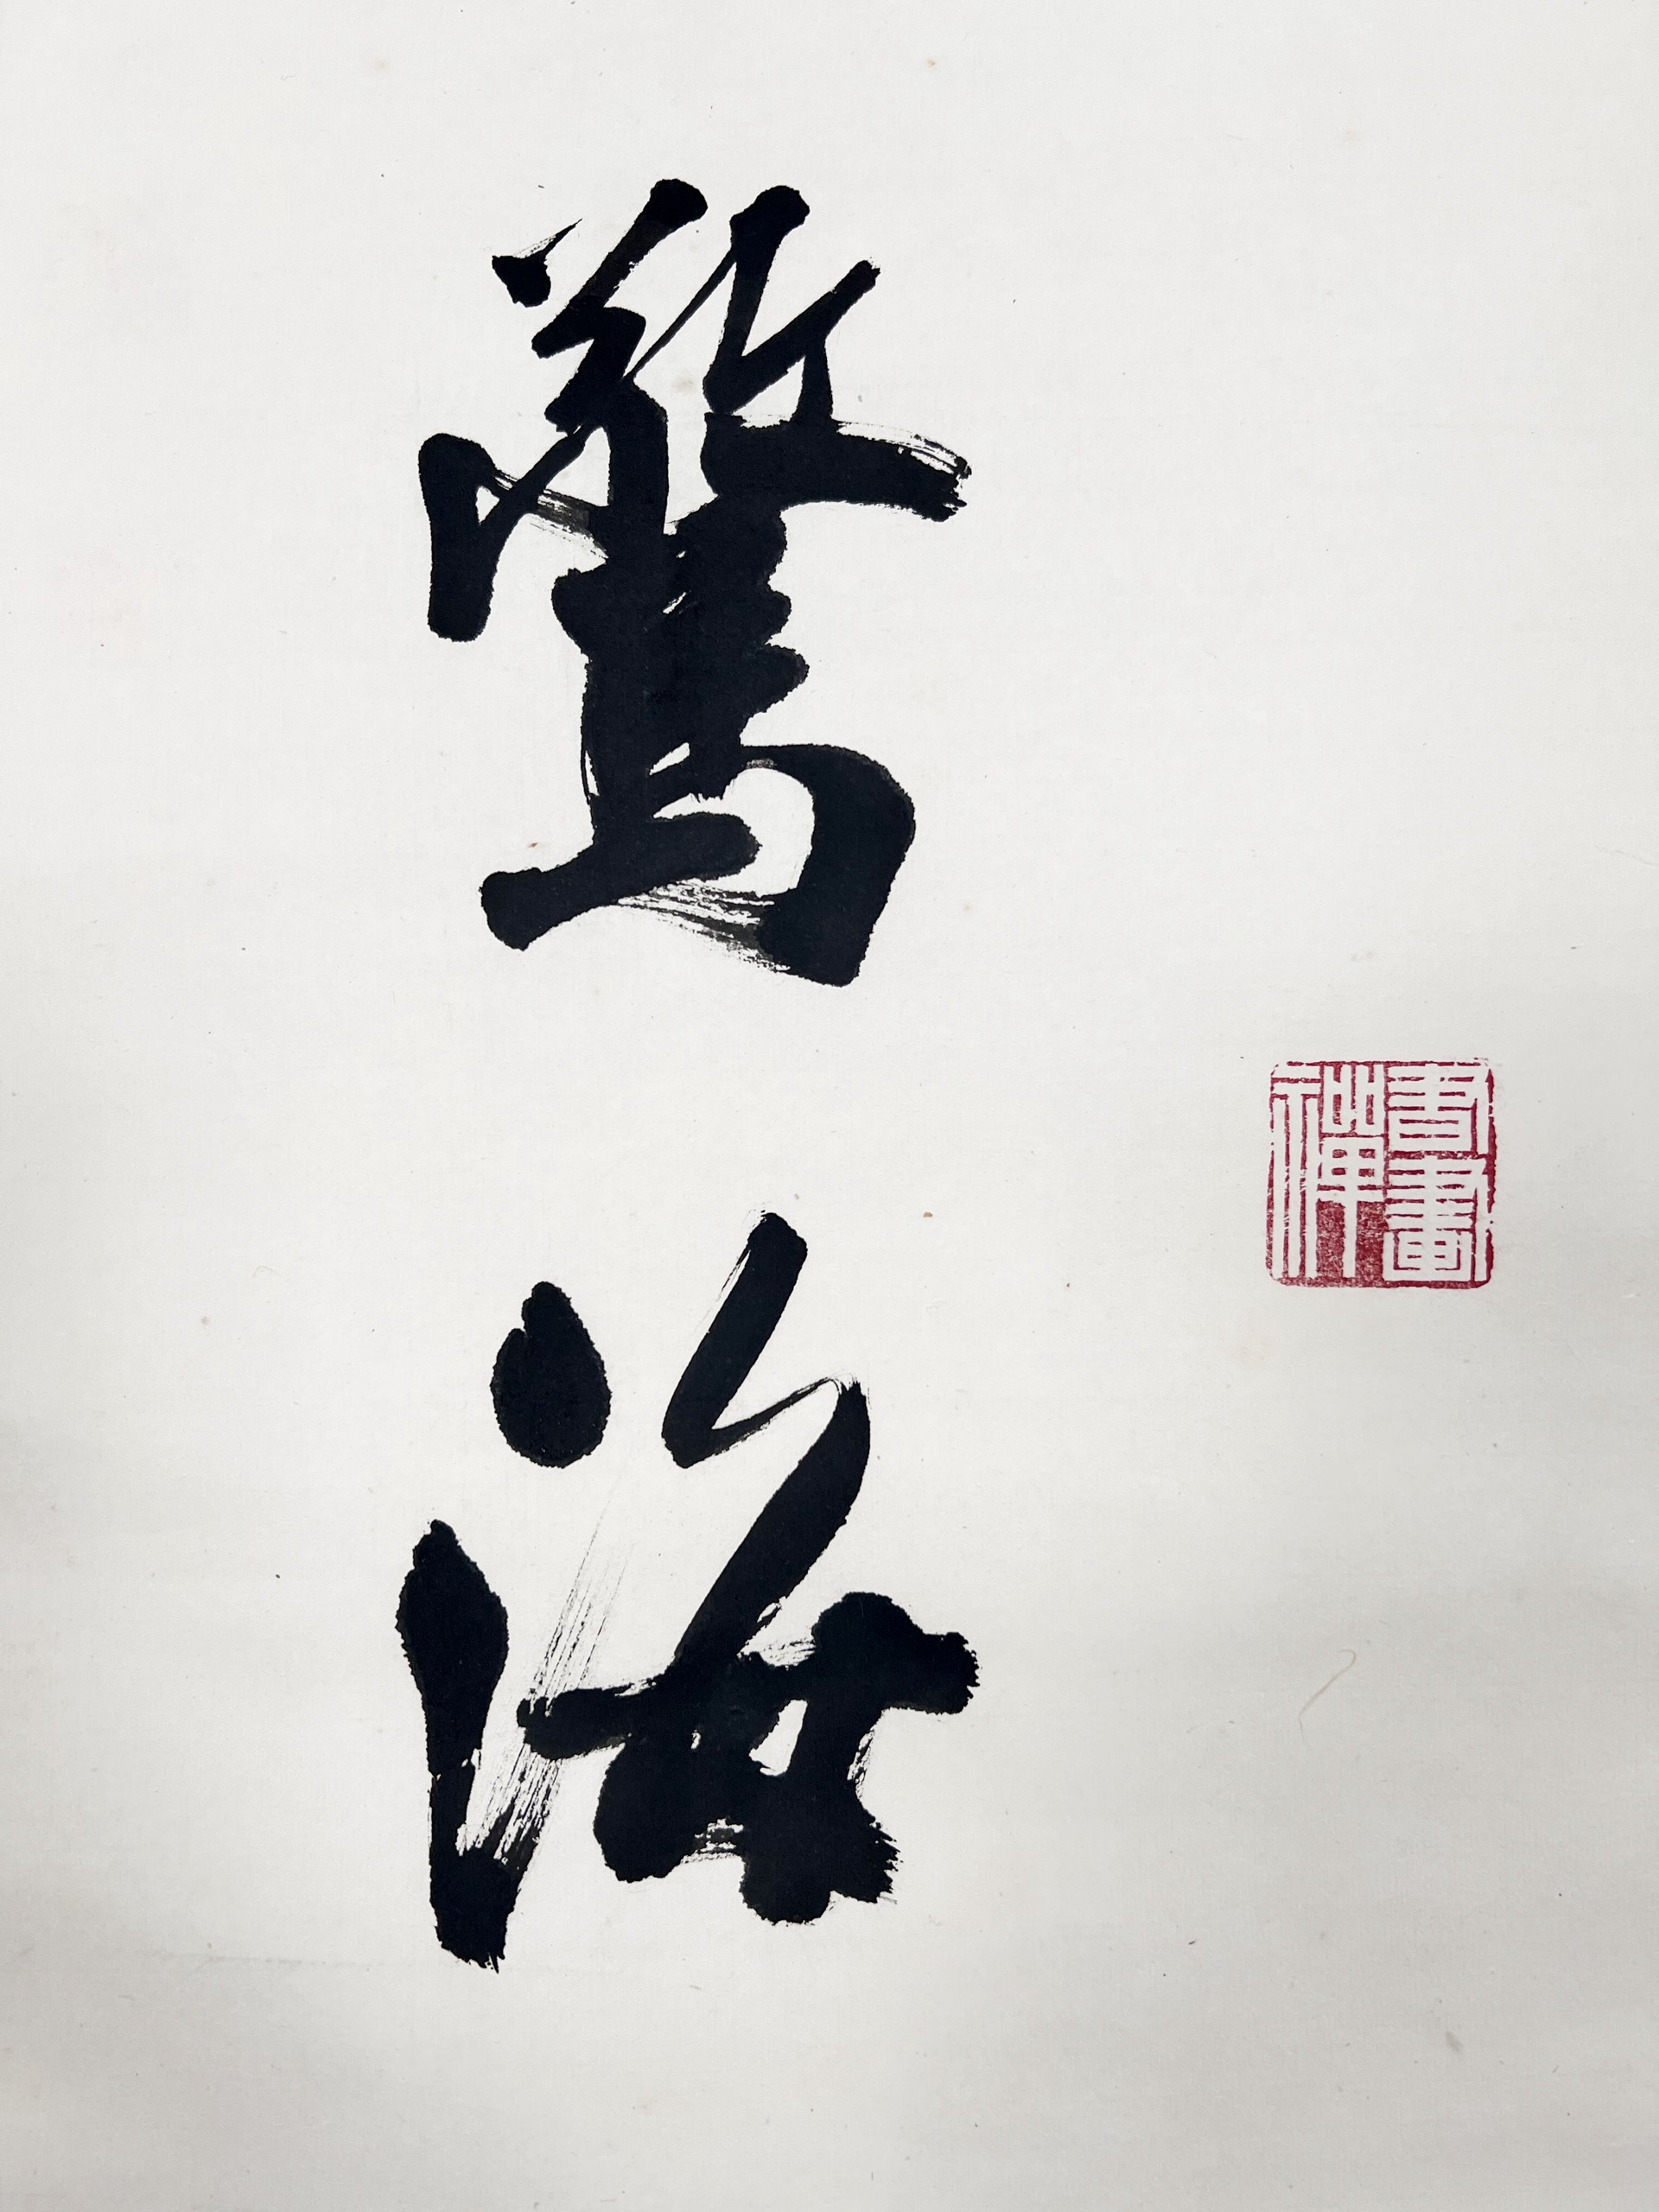 書畫
禪
驚海